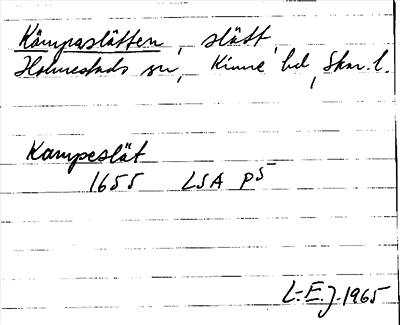 Kämpaslätten, slätt,
Holmestads sn, Kinne hd, Skar. l.
Kampeslät
1655 LSA P5
L-E.J. 1965